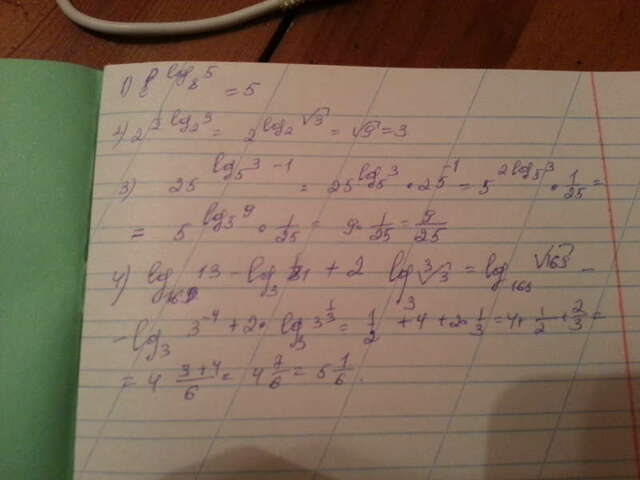 1) 8^{log_8 5} = 5
2) 2^{2 log_2 3} = 2^{log_2 √3} = √9 = 3
3) 25^{log_5 3 - 1} = 25^{log_5 3} · 25^{-1} = 5^{2 log_5 3} · 1/25 =
= 5^{log_5 9} · 1/25 = 9 · 1/25 = 9/25
4) log_{169} 13 - log_3 1/81 + 2 log_3 ∛3 = log_{169} √169 -
- log_3 3^{-4} + 2 · log_3 3^{1/3} = 1/2 + 4 + 2 · 1/3 = 4 + 1/2 + 2/3 =
= 4 3+4/6 = 4 7/6 = 5 1/6.